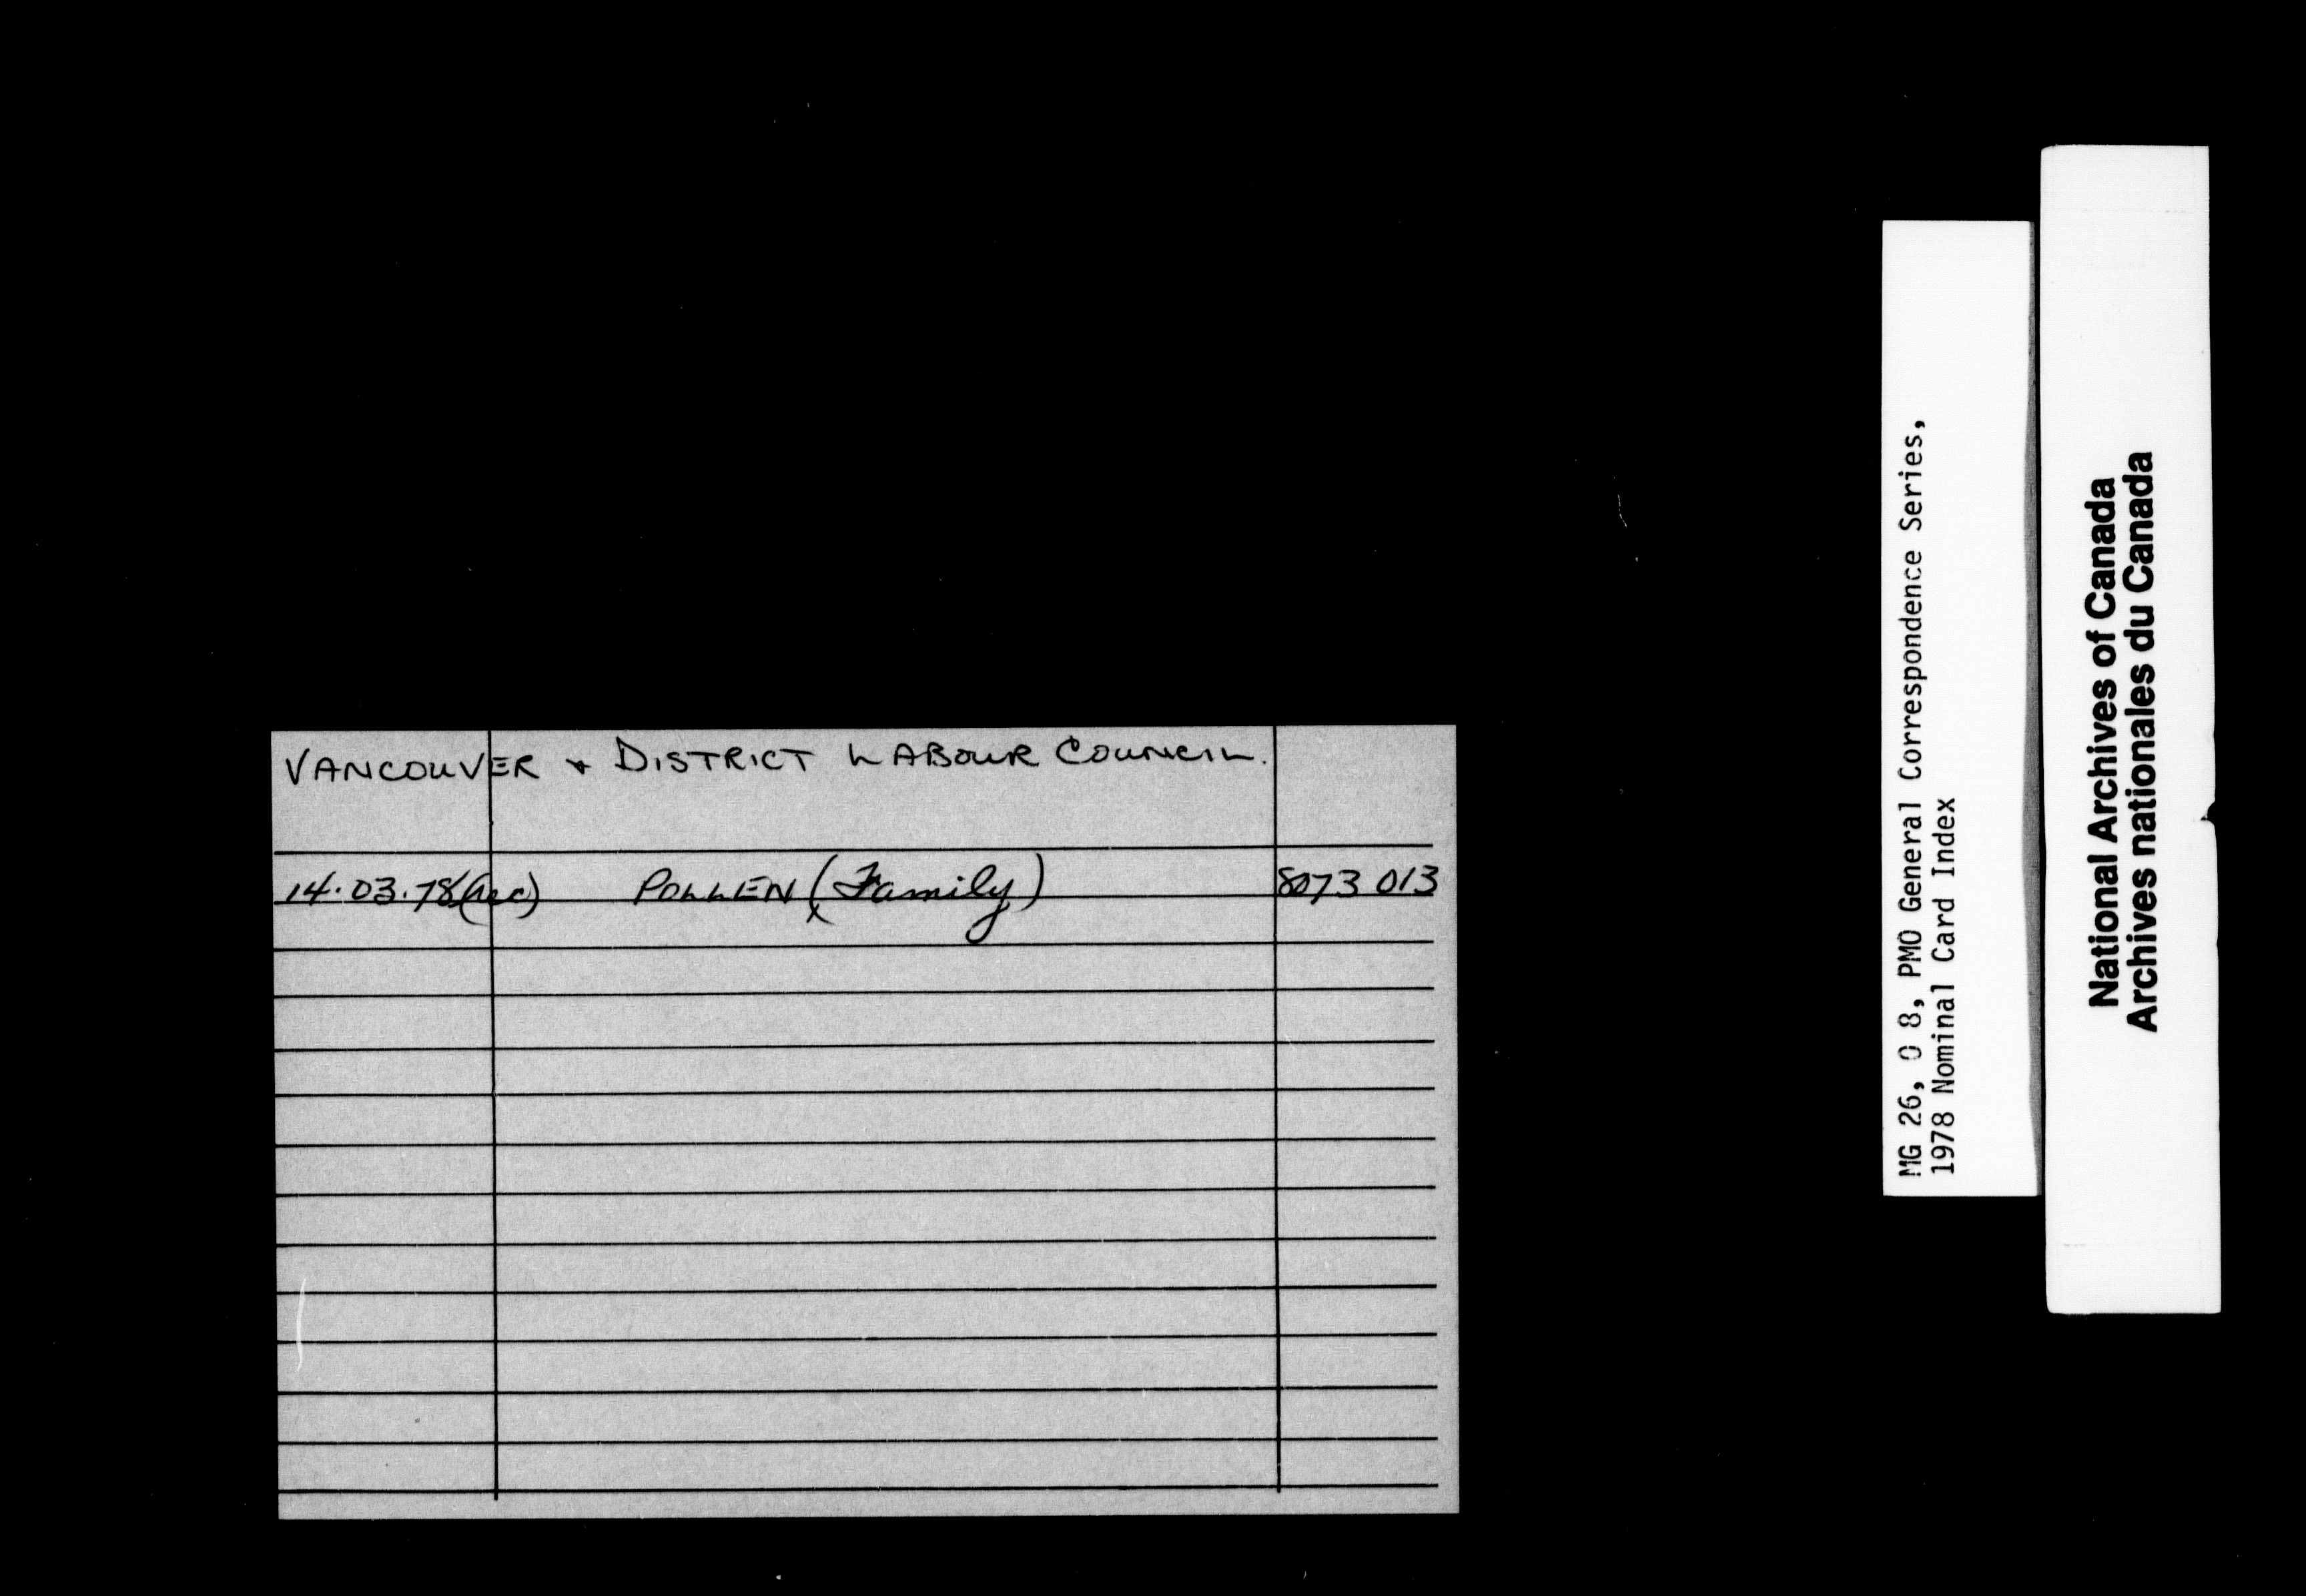 VANCOUVER + DISTRICT LABOUR COUNCIL.
14.03.78(rec) POLLEN (Family) 8073 013
MG 26, O 8, PMO General Correspondence Series,
1978 Nominal Card Index
National Archives of Canada
Archives nationales du Canada